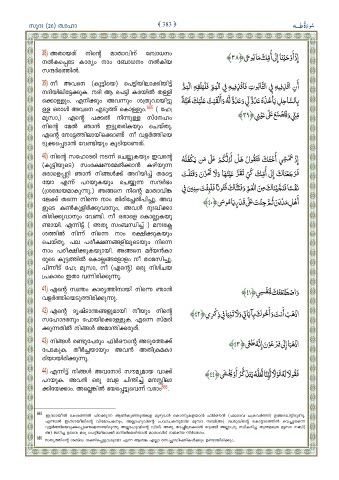 സൂറഃ (20) ത്വാഹാ
﴾ 383 ﴿
سُورَةُ طه
38) അതായത് നിന്റെ മാതാവിന് ബോധനം
നൽകപ്പെടേണ്ട കാര്യം നാം ബോധനം നൽകിയ
സന്ദർഭത്തിൽ.
إِذْ أَوْحَيْنَا إِلَىٰ أُمِّكَ مَا يُوحَىٰ ﴿٣٨﴾
39) നീ അവനെ (കുട്ടിയെ) പെട്ടിയിലാക്കിയിട്ട്
നദിയിലിട്ടേക്കുക. നദി ആ പെട്ടി കരയിൽ തള്ളി
ക്കൊള്ളും. എനിക്കും അവന്നും ശത്രുവായിട്ടു
ള്ള ഒരാൾ അവനെ എടുത്ത് കൊള്ളും. ( ഹേ;
മൂസാ,) എന്റെ പക്കൽ നിന്നുള്ള സ്നേഹം
നിന്റെ മേൽ ഞാൻ ഇട്ടുതരികയും ചെയ്തു.
എന്റെ നോട്ടത്തിലായിക്കൊണ്ട് നീ വളർത്തിയെ
ടുക്കപ്പെടാൻ വേണ്ടിയും കൂടിയാണത്.
أَنِ اقْذِفِيهِ فِي التَّابُوتِ فَاقْذِفِيهِ فِي الْيَمِّ فَلْيُلْقِهِ الْيَمُّ
بِالسَّاحِلِ يَأْخُذْهُ عَدُوٌّ لِي وَعَدُوٌّ لَهُ وَأَلْقَيْتُ عَلَيْكَ مَحَبَّةً
مِنِّي وَلِتُصْنَعَ عَلَىٰ عَيْنِي ﴿٣٩﴾
40) നിന്റെ സഹോദരി നടന്ന് ചെല്ലുകയും ഇവന്റെ
(കുട്ടിയുടെ) സംരക്ഷണമേൽക്കാൻ കഴിയുന്ന
ഒരാളെപ്പറ്റി ഞാൻ നിങ്ങൾക്ക് അറിയിച്ച് തരട്ടെ
യോ എന്ന് പറയുകയും ചെയ്യുന്ന സന്ദർഭം
(ശ്രദ്ധേയമാകുന്നു.) അങ്ങനെ നിന്റെ മാതാവിങ്ക
ലേക്ക് തന്നെ നിന്നെ നാം തിരിച്ചേൽപിച്ചു. അവ
ളുടെ കൺകുളിർക്കുവാനും, അവൾ ദുഃഖിക്കാ
തിരിക്കുവാനും വേണ്ടി. നീ ഒരാളെ കൊല്ലുകയു
ണ്ടായി. എന്നിട്ട് ( അതു സംബന്ധിച്ച് ) മനഃക്ലേ
ശത്തിൽ നിന്ന് നിന്നെ നാം രക്ഷിക്കുകയും
ചെയ്തു. പല പരീക്ഷണങ്ങളിലൂടെയും നിന്നെ
നാം പരീക്ഷിക്കുകയുണ്ടായി. അങ്ങനെ മദ്‌യൻകാ
രുടെ കൂട്ടത്തിൽ കൊല്ലങ്ങളോളം നീ താമസിച്ചു.
പിന്നീട് ഹേ; മൂസാ, നീ (എന്റെ) ഒരു നിശ്ചയ
പ്രകാരം ഇതാ വന്നിരിക്കുന്നു.
إِذْ تَمْشِي أُخْتُكَ فَتَقُولُ هَلْ أَدُلُّكُمْ عَلَىٰ مَنْ يَكْفُلُهُ
فَرَجَعْنَاكَ إِلَىٰ أُمِّكَ كَيْ تَقَرَّ عَيْنُهَا وَلَا تَحْزَنَ وَقَتَلْتَ
نَفْسًا فَنَجَّيْنَاكَ مِنَ الْغَمِّ وَفَتَنَّاكَ فُتُونًا فَلَبِثْتَ سِنِينَ فِي
أَهْلِ مَدْيَنَ ثُمَّ جِئْتَ عَلَىٰ قَدَرٍ يَا مُوسَىٰ ﴿٤٠﴾
41) എന്റെ സ്വന്തം കാര്യത്തിനായി നിന്നെ ഞാൻ
വളർത്തിയെടുത്തിരിക്കുന്നു.
وَاصْطَنَعْتُكَ لِنَفْسِي ﴿٤١﴾
42) എന്റെ ദൃഷ്ടാന്തങ്ങളുമായി നീയും നിന്റെ
സഹോദരനും പോയിക്കൊള്ളുക. എന്നെ സ്മരി
ക്കുന്നതിൽ നിങ്ങൾ അമാന്തിക്കരുത്.
اذْهَبْ أَنْتَ وَأَخُوكَ بِآيَاتِي وَلَا تَنِيَا فِي ذِكْرِي ﴿٤٢﴾
43) നിങ്ങൾ രണ്ടുപേരും ഫിർഔന്റെ അടുത്തേക്ക്
പോകുക. തീർച്ചയായും അവൻ അതിക്രമകാ
രിയായിരിക്കുന്നു.
اذْهَبَا إِلَىٰ فِرْعَوْنَ إِنَّهُ طَغَىٰ ﴿٤٣﴾
44) എന്നിട്ട് നിങ്ങൾ അവനോട് സൗമ്യമായ വാക്ക്
പറയുക. അവൻ ഒരു വേള ചിന്തിച്ച് മനസ്സിലാ
ക്കിയേക്കാം. അല്ലെങ്കിൽ ഭയപ്പെട്ടുവെന്ന് വരാം.
فَقُولَا لَهُ قَوْلًا لَيِّنًا لَعَلَّهُ يَتَذَكَّرُ أَوْ يَخْشَىٰ ﴿٤٤﴾